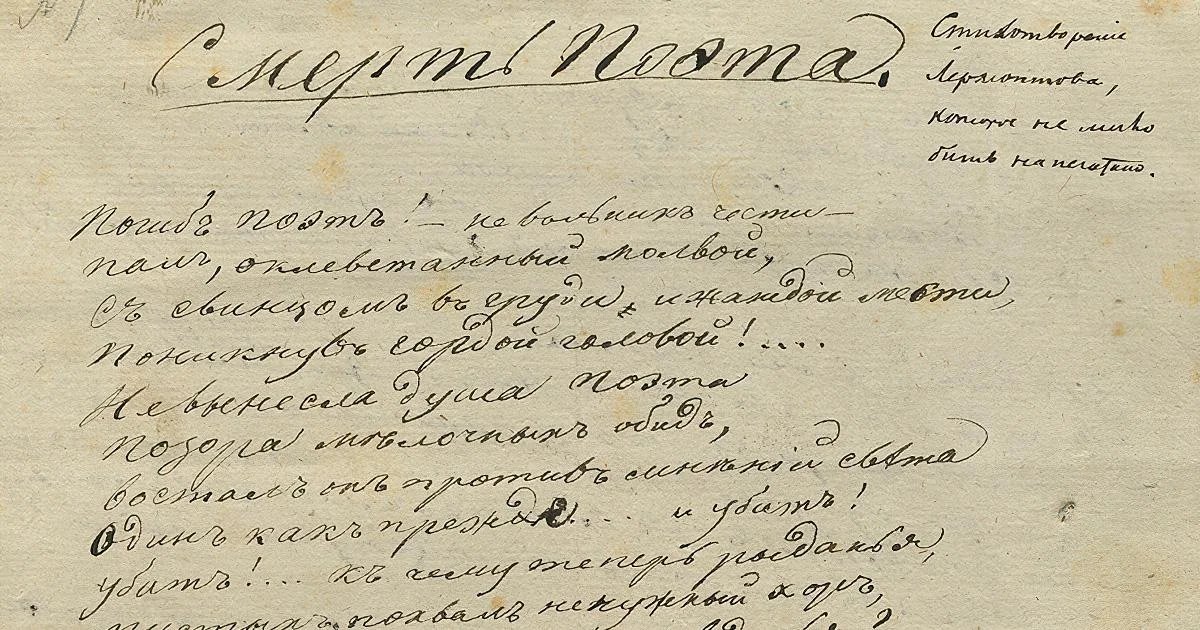 Смерть Поэта.
Стихотворенiе
Лермонтова,
которое не могло
быть напечатано.
Погибъ поэтъ! — невольникъ чести —
палъ, оклеветанный молвой,
Съ свинцомъ въ груди, и жаждой мести,
Поникнувъ гордой головой!....
Не вынесла душа поэта
позора мѣлочныхъ обидъ,
возсталъ онъ противъ мнѣнiй свѣта
Одинъ какъ прежде.... и убитъ!
убитъ!.... къ чему теперь рыданья,
пустыхъ похвалъ ненужный хоръ,